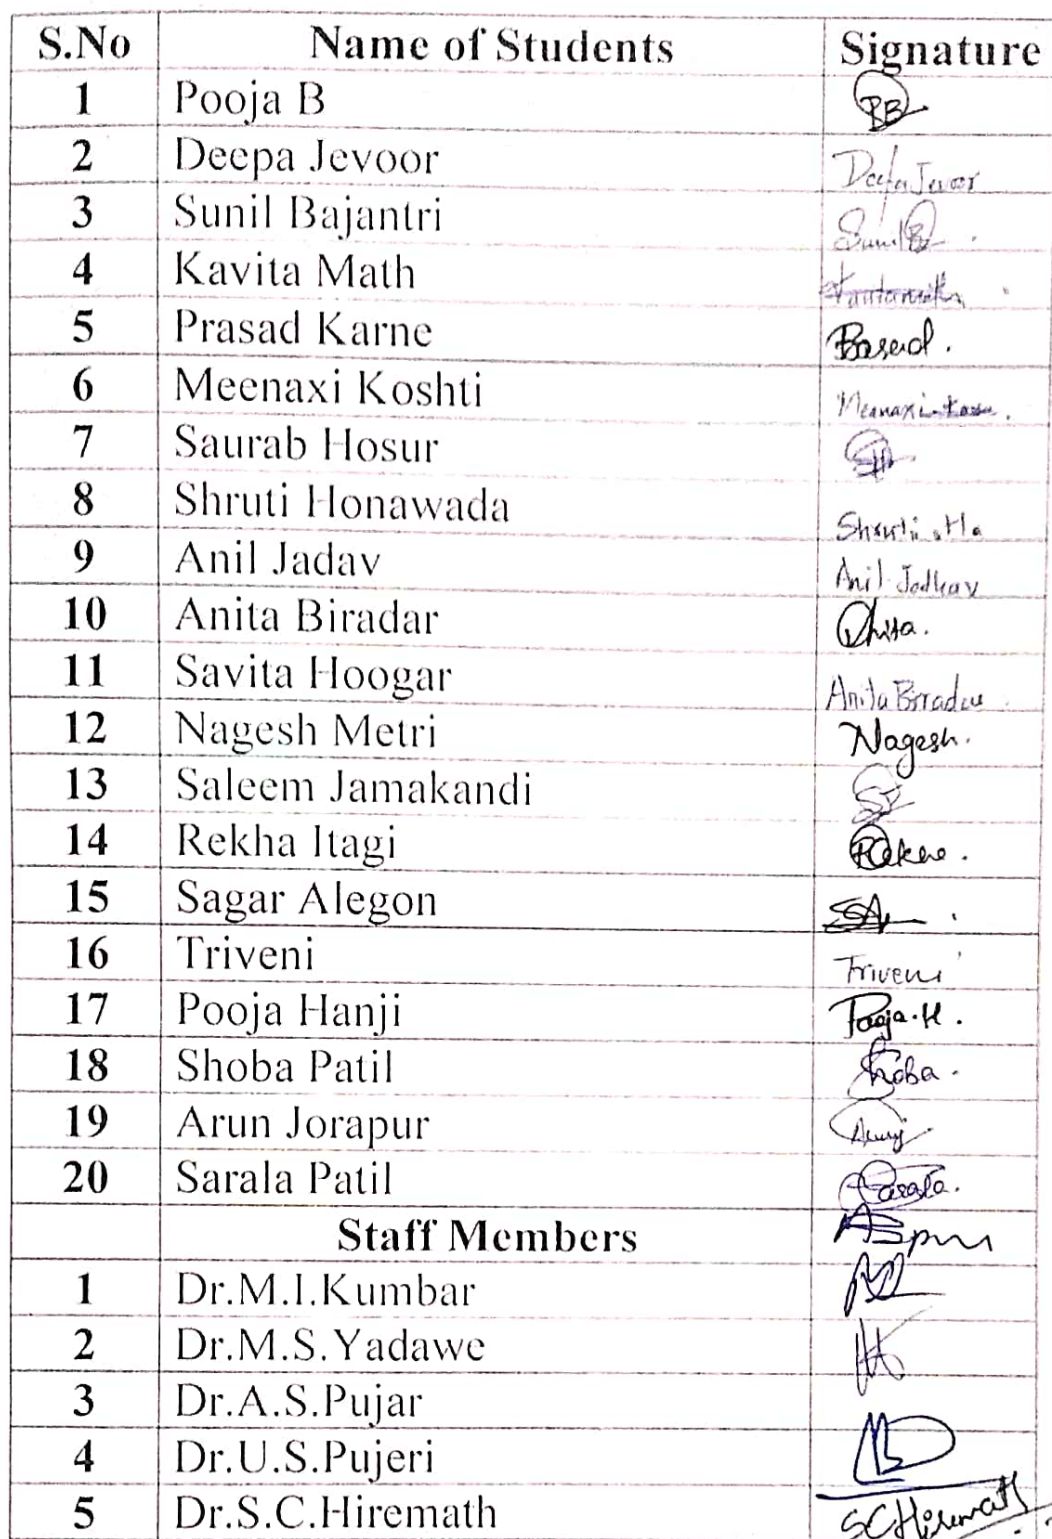 S.No Name of Students Signature
1 Pooja B PB
2 Deepa Jevoor Deepa Jevoor
3 Sunil Bajantri Sunil B
4 Kavita Math
5 Prasad Karne
6 Meenaxi Koshti Meenaxi
7 Saurab Hosur SH
8 Shruti Honawada Shruti
9 Anil Jadav Anil Jadhav
10 Anita Biradar
11 Savita Hoogar Anita Biradar
12 Nagesh Metri Nagesh.
13 Saleem Jamakandi SJ
14 Rekha Itagi
15 Sagar Alegon SA
16 Triveni Triveni
17 Pooja Hanji Pooja.H.
18 Shoba Patil Shoba.
19 Arun Jorapur
20 Sarala Patil Sarala.
Staff Members
1 Dr.M.I.Kumbar
2 Dr.M.S.Yadawe
3 Dr.A.S.Pujar
4 Dr.U.S.Pujeri
5 Dr.S.C.Hiremath SCHiremath